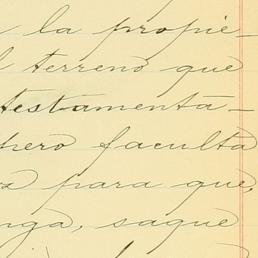 la propie-
terreno que
testamenta-
pero faculta
para que,
nga, saque